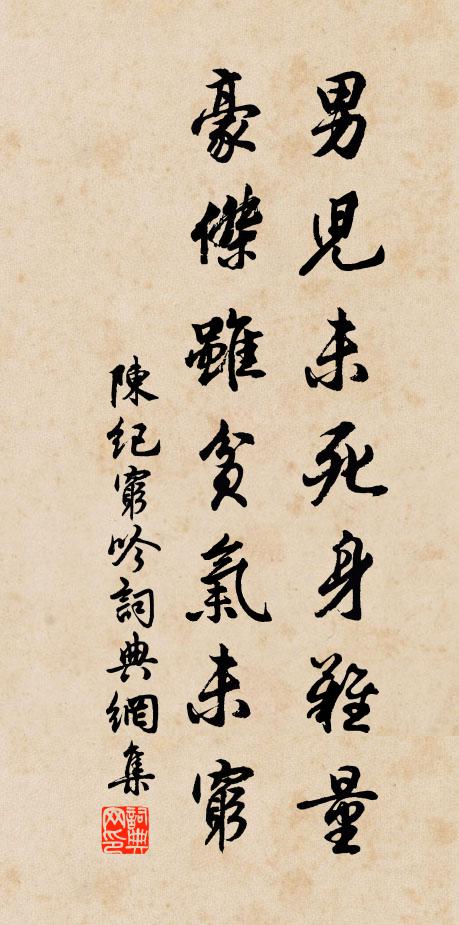 男兒未死身難量
豪傑雖貧氣未窮
陳紀窮吟詞典網集
詞典網印